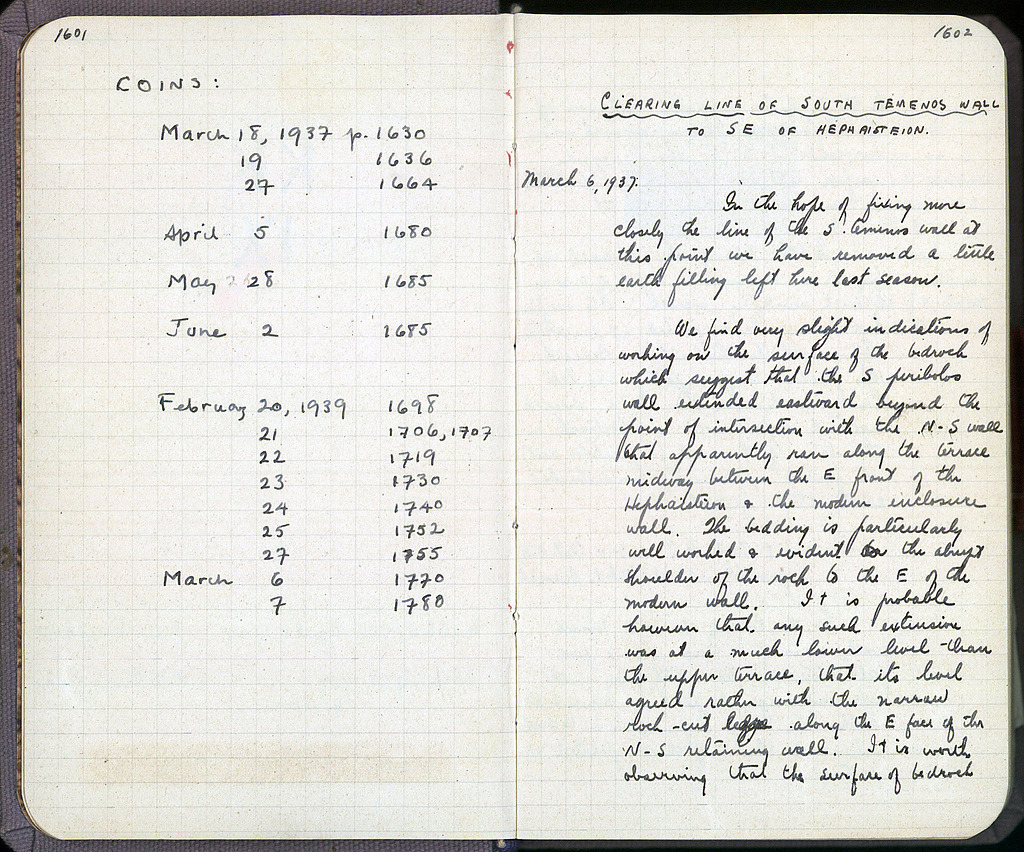 1601
COINS:
March 18, 1937 p. 1630
19 1636
27 1664
April 5 1680
May 28 1685
June 2 1685
February 20, 1939 1698
21 1706, 1707
22 1719
23 1730
24 1740
25 1752
27 1755
March 6 1770
7 1780
1602
CLEARING LINE OF SOUTH TEMENOS WALL
TO SE OF HEPHAISTEION.
March 6, 1937.
In the hope of fixing more
closely the line of the S. temenos wall at
this point we have removed a little
earth filling left here last season.
We find very slight indications of
working on the surface of the bedrock
which suggest that the S peribolos
wall extended eastward beyond the
point of intersection with the N-S wall
that apparently ran along the terrace
midway between the E front of the
Hephaisteion & the modern enclosure
wall. The bedding is particularly
well worked & evident on the abrupt
shoulder of the rock to the E of the
modern wall. It is probable
however that any such extension
was at a much lower level than
the upper terrace, that its level
agreed rather with the narrow
rock-cut ledge along the E face of the
N-S retaining wall. It is worth
observing that the surface of bedrock